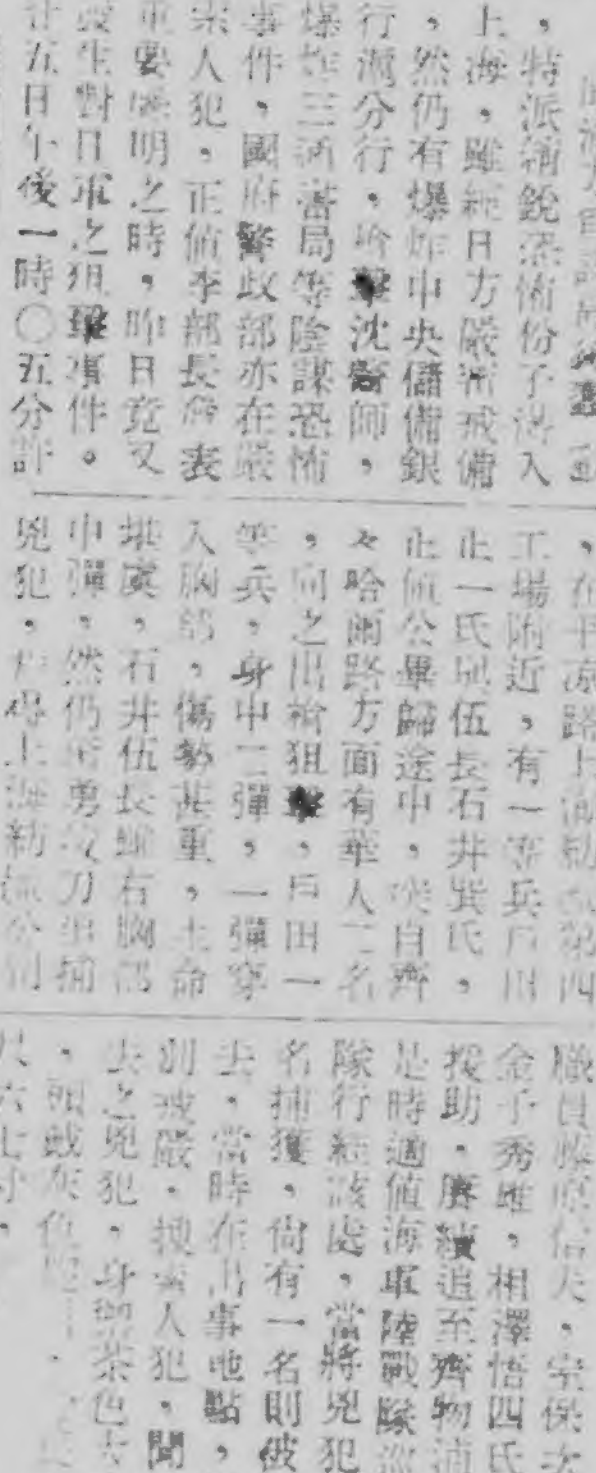 ，特派精銳恐怖份子潛入
上海，雖經日方嚴密戒備
，然仍有爆炸中央儲備銀
行滬分行，槍擊沈醫師，
爆炸三酒番局等陰謀恐怖
事件，國府警政部亦在嚴
人犯，正值李部長發表
重要聲明之時，昨日竟又
發生對日軍之狙擊事件。
廿五日午後一時〇五分許
，在平凉路上海紡第四
工場附近，有一等兵戶田
止一氏與伍長石井巽氏，
正值公畢歸途中，突自齊
々哈爾路方面有華人二名
，向之出槍狙擊，戶田一
等兵，身中二彈，一彈穿
入胸部，傷勢甚重，生命
堪虞，石井伍長雖右胸部
中彈，然仍奮勇拔刀追捕
兇犯，得上海紡公司
職員藤原信夫，室保次
金子秀雄，相澤悟四氏
援助，賡續追至齊物浦
是時適值海軍陸戰隊巡
隊行經該處，當將兇犯
名捕獲，尚有一名則被
去，當時在出事地點，
戒嚴，搜索人犯，聞
去之兇犯，身御茶色大
，頭戴灰色
尺六七寸，